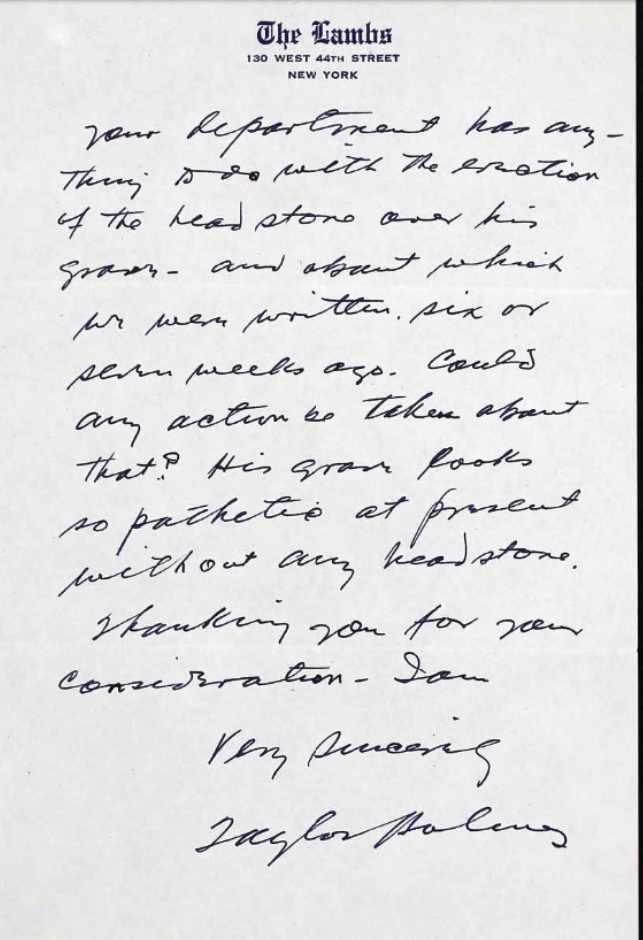 The Lambs
130 WEST 44TH STREET
NEW YORK
your department has any-
thing to do with the erection
of the head stone over his
grave - and about which
we were written. six or
seven weeks ago. Could
any action be taken about
that? His grave looks
so pathetic at present
without any headstone.
Thanking you for your
consideration - I am
Very Sincerely
Taylor Holmes